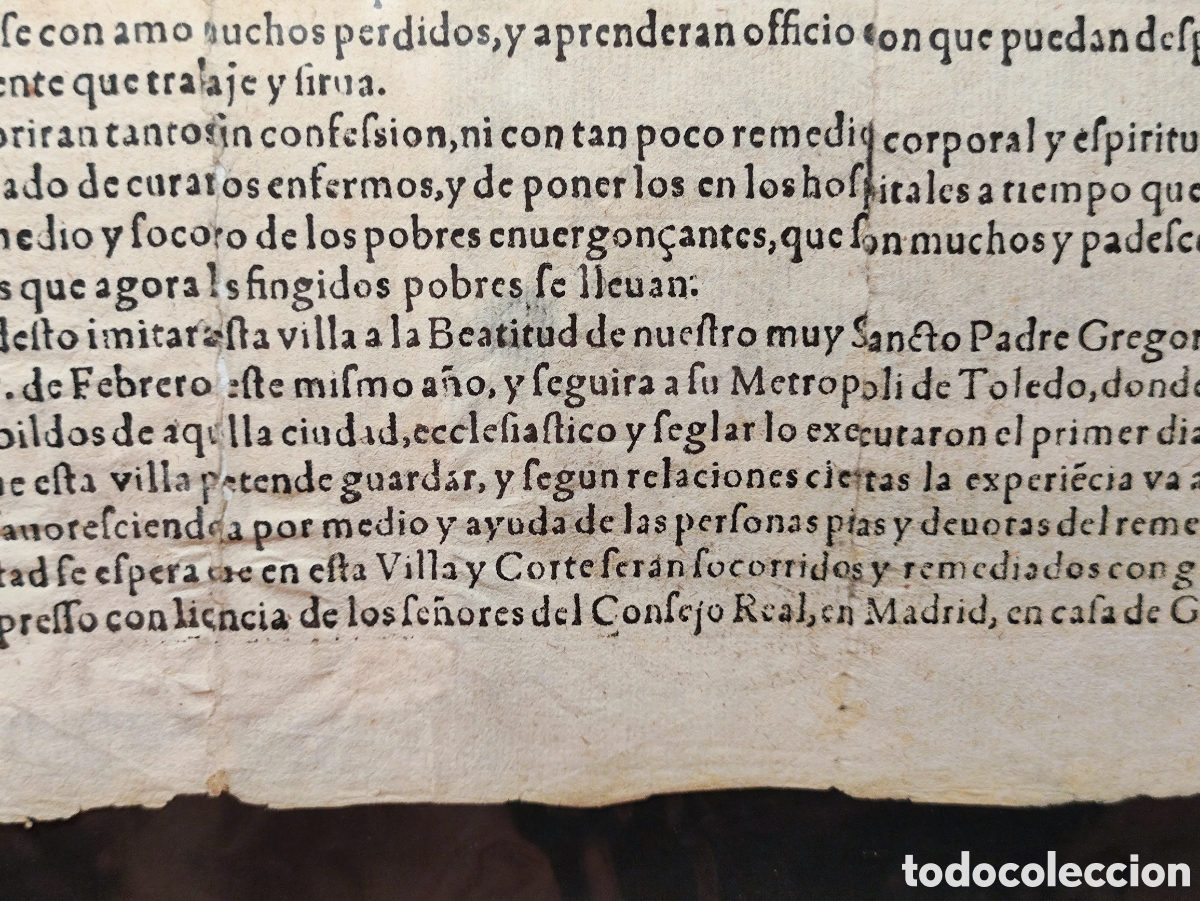 ſe con amo muchos perdidos, y aprenderan officio con que puedan deſp
ente que trabaje y ſirua.
oriran tantos ſin confeſsion, ni con tan poco remedio corporal y eſpiritu
ado de curar los enfermos, y de poner los en los hoſpitales a tiempo que
medio y ſocorro de los pobres enuergonçantes, que ſon muchos y padeſce
s que agora los fingidos pobres ſe lleuan:
deſto imitara eſta villa a la Beatitud de nueſtro muy Sancto Padre Gregor
. de Febrero eſte miſmo año, y ſeguira a ſu Metropoli de Toledo, donde
bildos de aquella ciudad, eccleſiaſtico y ſeglar lo executaron el primer dia
ue eſta villa pretende guardar, y ſegun relaciones ciertas la experiẽcia va a
fauoreſciendo a por medio y ayuda de las perſonas pias y deuotas del reme
tad ſe eſpera que en eſta Villa y Corte ſeran ſocorridos y remediados con g
preſſo con licencia de los ſeñores del Conſejo Real, en Madrid, en caſa de G
todocoleccion